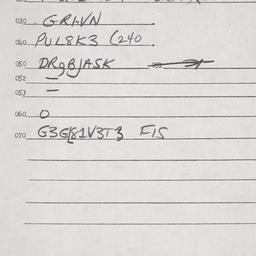 030. GRI-VN
060 PUL8K3 (240.
050 DR9BJASK
052 —
053 —
060 O
070 G3G/81V3T3 EIS